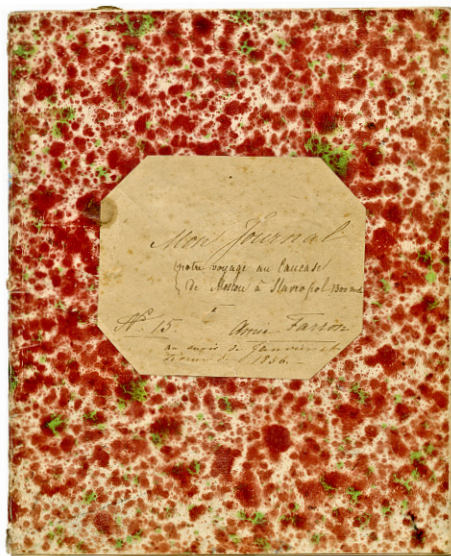 Mon Journal
notre voyage au Caucase
de Moscou à Stavropol
à
N° 15. Farson
au mois de Janvier et
1856.